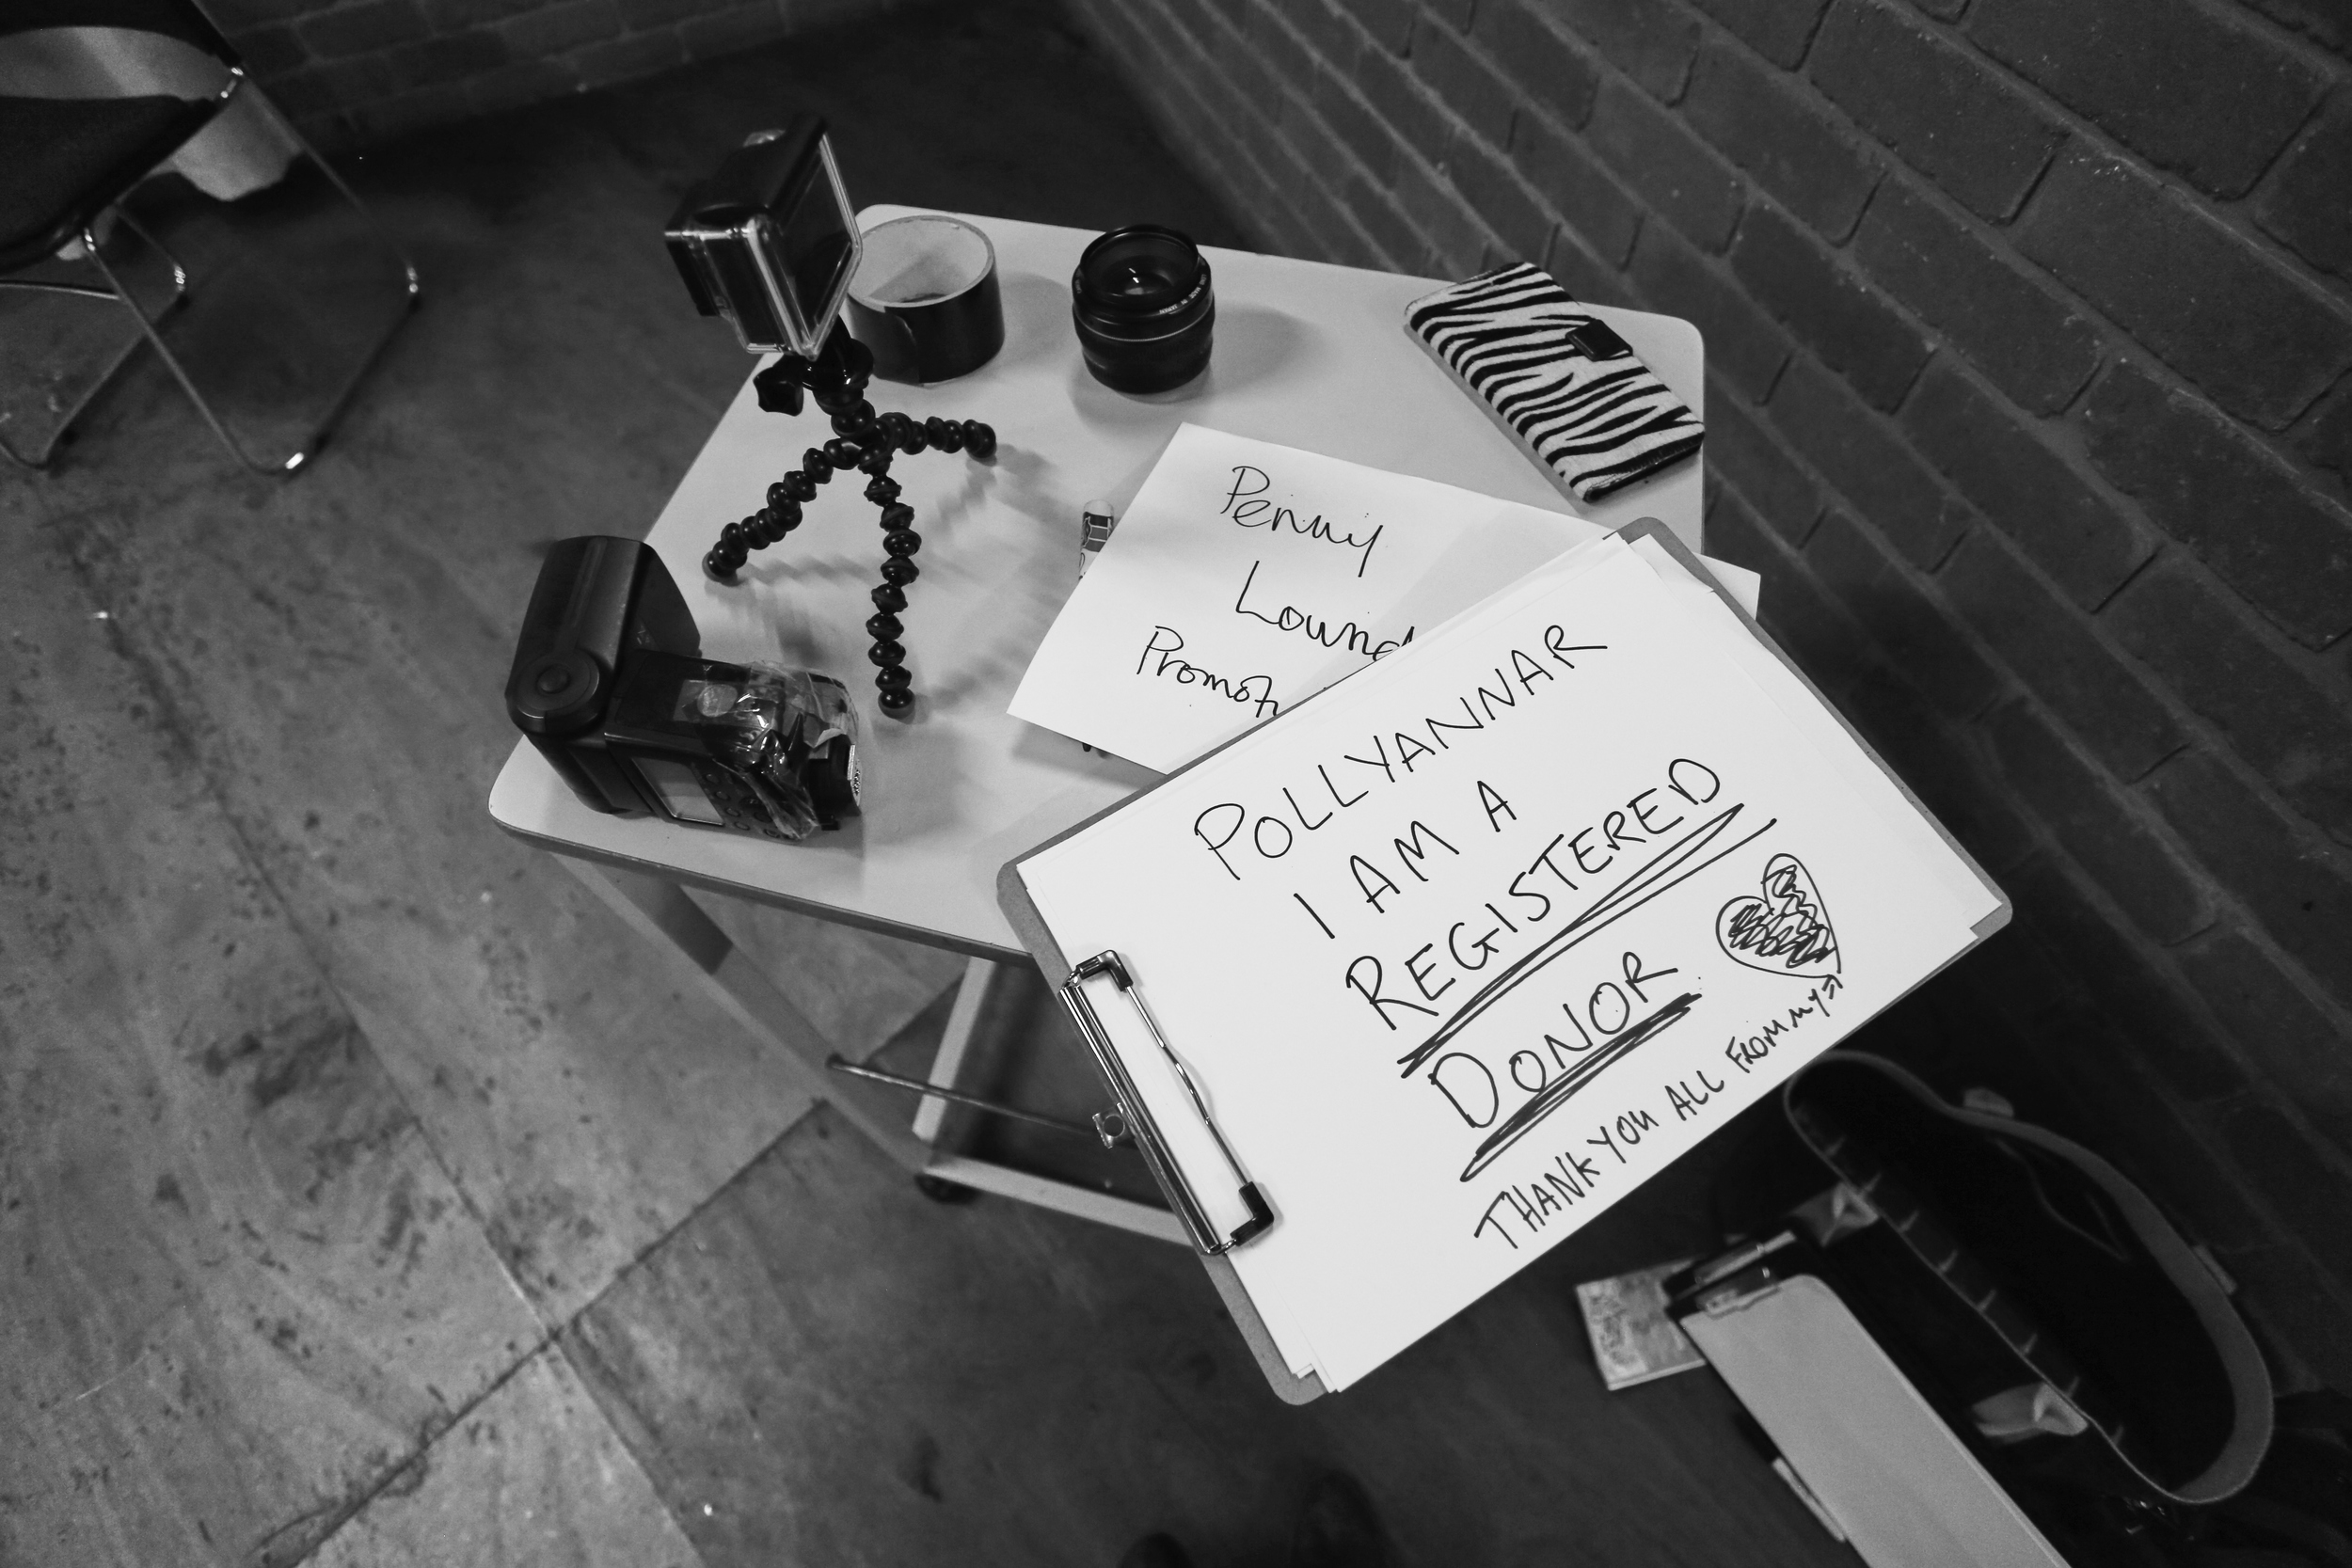 Penny
Lound
Promot
POLLYANNAR
I AM A
REGISTERED
DONOR
THANK YOU ALL FROM MY